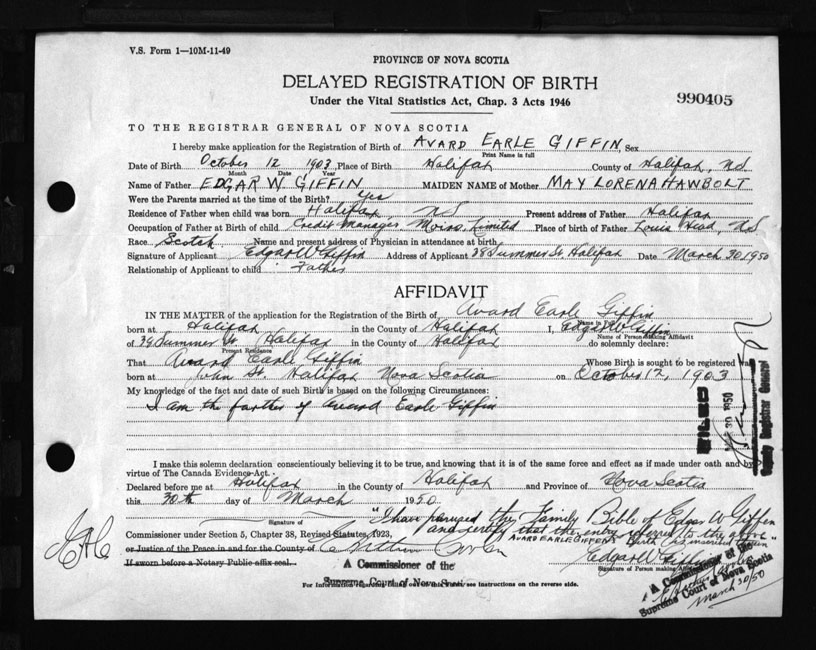 V.S. Form 1—10M-11-49
PROVINCE OF NOVA SCOTIA
DELAYED REGISTRATION OF BIRTH
Under the Vital Statistics Act, Chap. 3 Acts 1946
990405
TO THE REGISTRAR GENERAL OF NOVA SCOTIA
I hereby make application for the Registration of Birth of AVARD EARLE GIFFIN, Sex
Print Name in full
Date of Birth October 12 1903, Place of Birth Halifax County of Halifax, NS
Month Day Year
Name of Father EDGAR W. GIFFIN MAIDEN NAME of Mother MAY LORENA HAWBOLT
Were the Parents married at time of the Birth? Yes
Residence of Father when child was born Halifax, NS Present address of Father Halifax
Occupation of Father at Birth of child Credit Manager Moirs, Limited Place of birth of Father Louis Head, NS
Race Scotch Name and present address of Physician in attendance at birth
Signature of Applicant Edgar W Giffin Address of Applicant 38 Summer St. Halifax Date March 30, 1950
Relationship of Applicant to child Father
AFFIDAVIT
IN THE MATTER of the application for the Registration of Birth of Avard Earle Giffin
Name in Full
born at Halifax in the County of Halifax I, Edgar W Giffin
Name of Person making Affidavit
of 38 Summer St. Halifax in the County of Halifax do solemnly declare:
Present Residence
That Avard Earle Giffin Whose Birth is sought to be registered was
born at John St. Halifax Nova Scotia on October 12, 1903
My knowledge of the fact and date of such Birth is based on the following Circumstances:
I am the farther of Avard Earle Giffin
FILED
MAR 30 1950
Deputy Registrar General
I make this solemn declaration conscientiously believing it to be true, and knowing that it is of the same force and effect as if made under oath and by
virtue of The Canada Evidence Act.
Declared before me at Halifax in the County of Halifax and Province of Nova Scotia
this 30th day of March 1950
"I have perused the Family Bible of Edgar W Giffin
Signature of
and certify that the entry referred to the above"
Commissioner under Section 5, Chapter 38, Revised Statutes, 1923,
AVARD EARLE GIFFIN'S birth
or Justice of the Peace in and for the County of
Edgar W Giffin
If sworn before a Notary Public affix seal.
Signature of Person making Affidavit
A Commissioner of the
Supreme Court of Nova Scotia
For Information regarding see instructions on the reverse side.
A Commissioner of the
Supreme Court of Nova Scotia
March 30/50